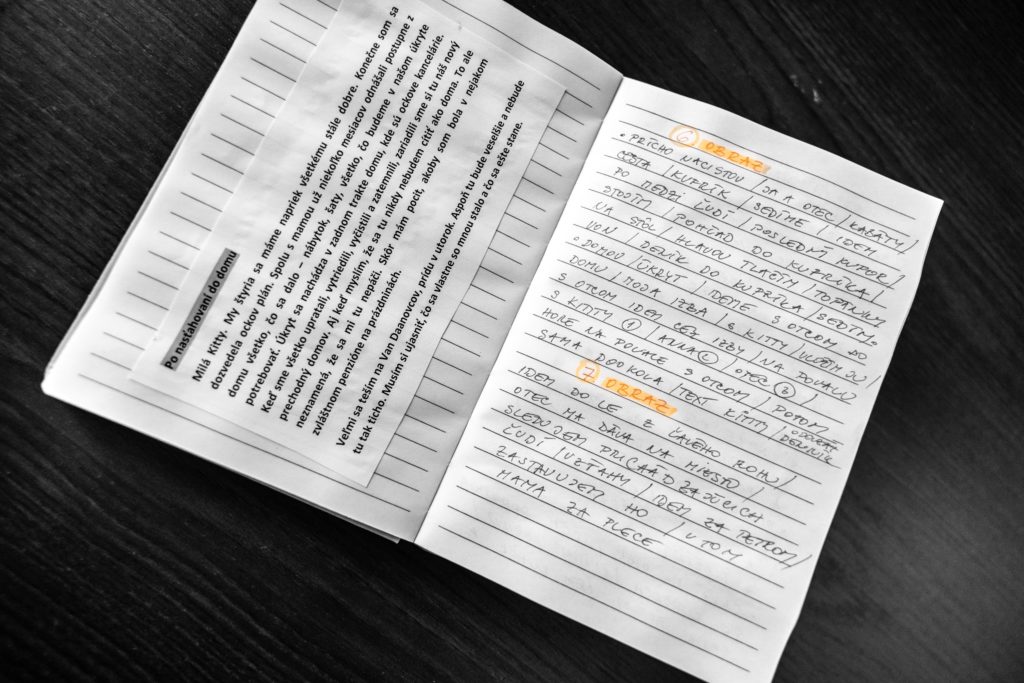 Po nasťahovaní do domu
Milá Kitty. My štyria sa máme napriek všetkému stále dobre. Konečne som sa
dozvedela ockov plán. Spolu s mamou už niekoľko mesiacov odnášali postupne z
domu všetko, čo sa dalo – nábytok, šaty, všetko, čo budeme v našom úkryte
potrebovať. Úkryt sa nachádza v zadnom trakte domu, kde sú ockove kancelárie.
Keď sme všetko upratali, vytriedili, vyčistili a zatemnili, zariadili sme si tu náš nový
prechodný domov. Aj keď myslím, že sa tu nikdy nebudem cítiť ako doma. To ale
neznamená, že sa mi tu nepáči. Skôr mám pocit, akoby som bola v nejakom
zvláštnom penzióne na prázdninách.
Veľmi sa teším na Van Daanovcov, prídu v utorok. Aspoň tu bude veselšie a nebude
tu tak ticho. Musím si ujasniť, čo sa vlastne so mnou stalo a čo sa ešte stane.
6 OBRAZ
• PRÍCHO NACISTOV / JA A OTEC / KABÁTY /
CESTA / KUFRÍK / SEDÍME / IDEM
PO MEDZI ĽUDÍ / POSLEDNÝ KUFOR /
STOJÍM / POHĽAD DO KUFRÍKA /
NA STÔL / HLAVOU TLAČÍM / TOPÁNKY
VON / DENÍK DO KUFRÍKA / SEDÍM.
• DOMOV / ÚKRYT / IDEME S OTCOM DO
DOMU / MOJA IZBA / S KITTY / ULOŽÍM JU /
S OTCOM IDEM CEZ IZBY / NA POVALU
S KITTY ① / ANNA ② / OTEC ③ /
HORE NA POVALE S OTCOM / POTOM
SAMA DOOKOLA / TEXT KITTY / ODOVZDÁŠ DENNÍK
7 OBRAZ
IDEM DO ĽE Z ĽAVÉHO ROHU /
OTEC MA DÁVA NA MIESTO /
SLEDUJEM PRICHÁDZAJÚCICH
ĽUDÍ / VZŤAHY / IDEM ZA PETROM /
ZASTAVUJEM HO / V TOM
MAMA ZA PLECE